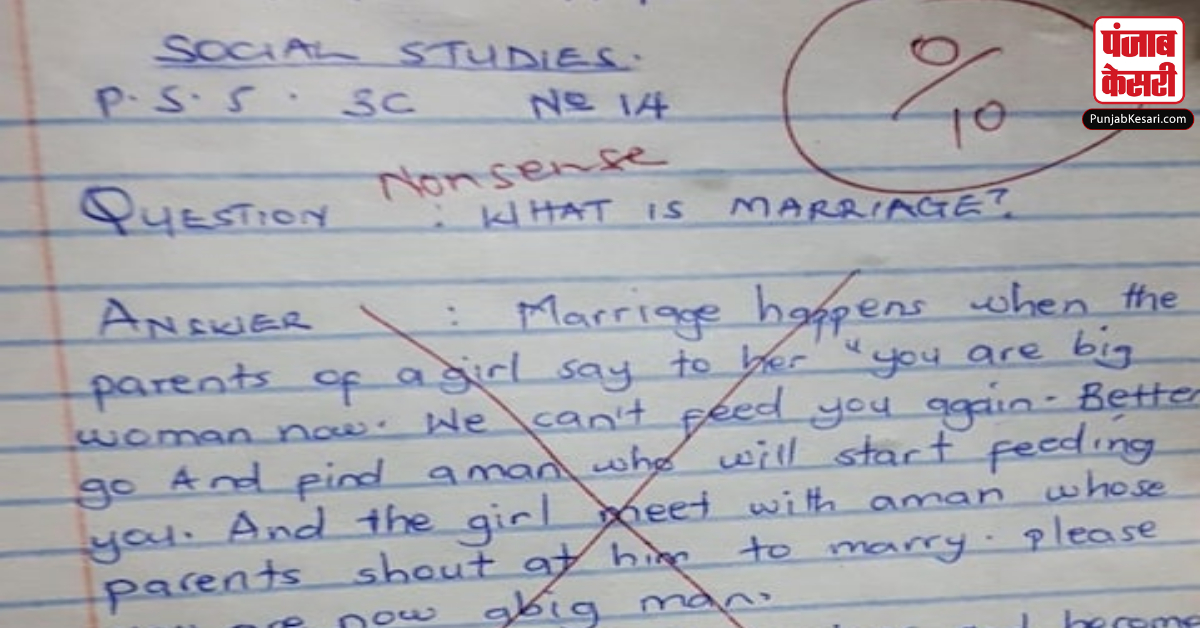 पंजाब
केसरी
PunjabKesari.com
SOCIAL STUDIES.
P.S.S. 3C No 14
0/10
Nonsense
QUESTION : WHAT IS MARRIAGE?
ANSWER : Marriage happens when the
parents of a girl say to her "you are big
woman now. We can't feed you again. Better
go And find a man who will start feeding
you. And the girl meet with a man whose
parents shout at him to marry. please
are now a big man.
become